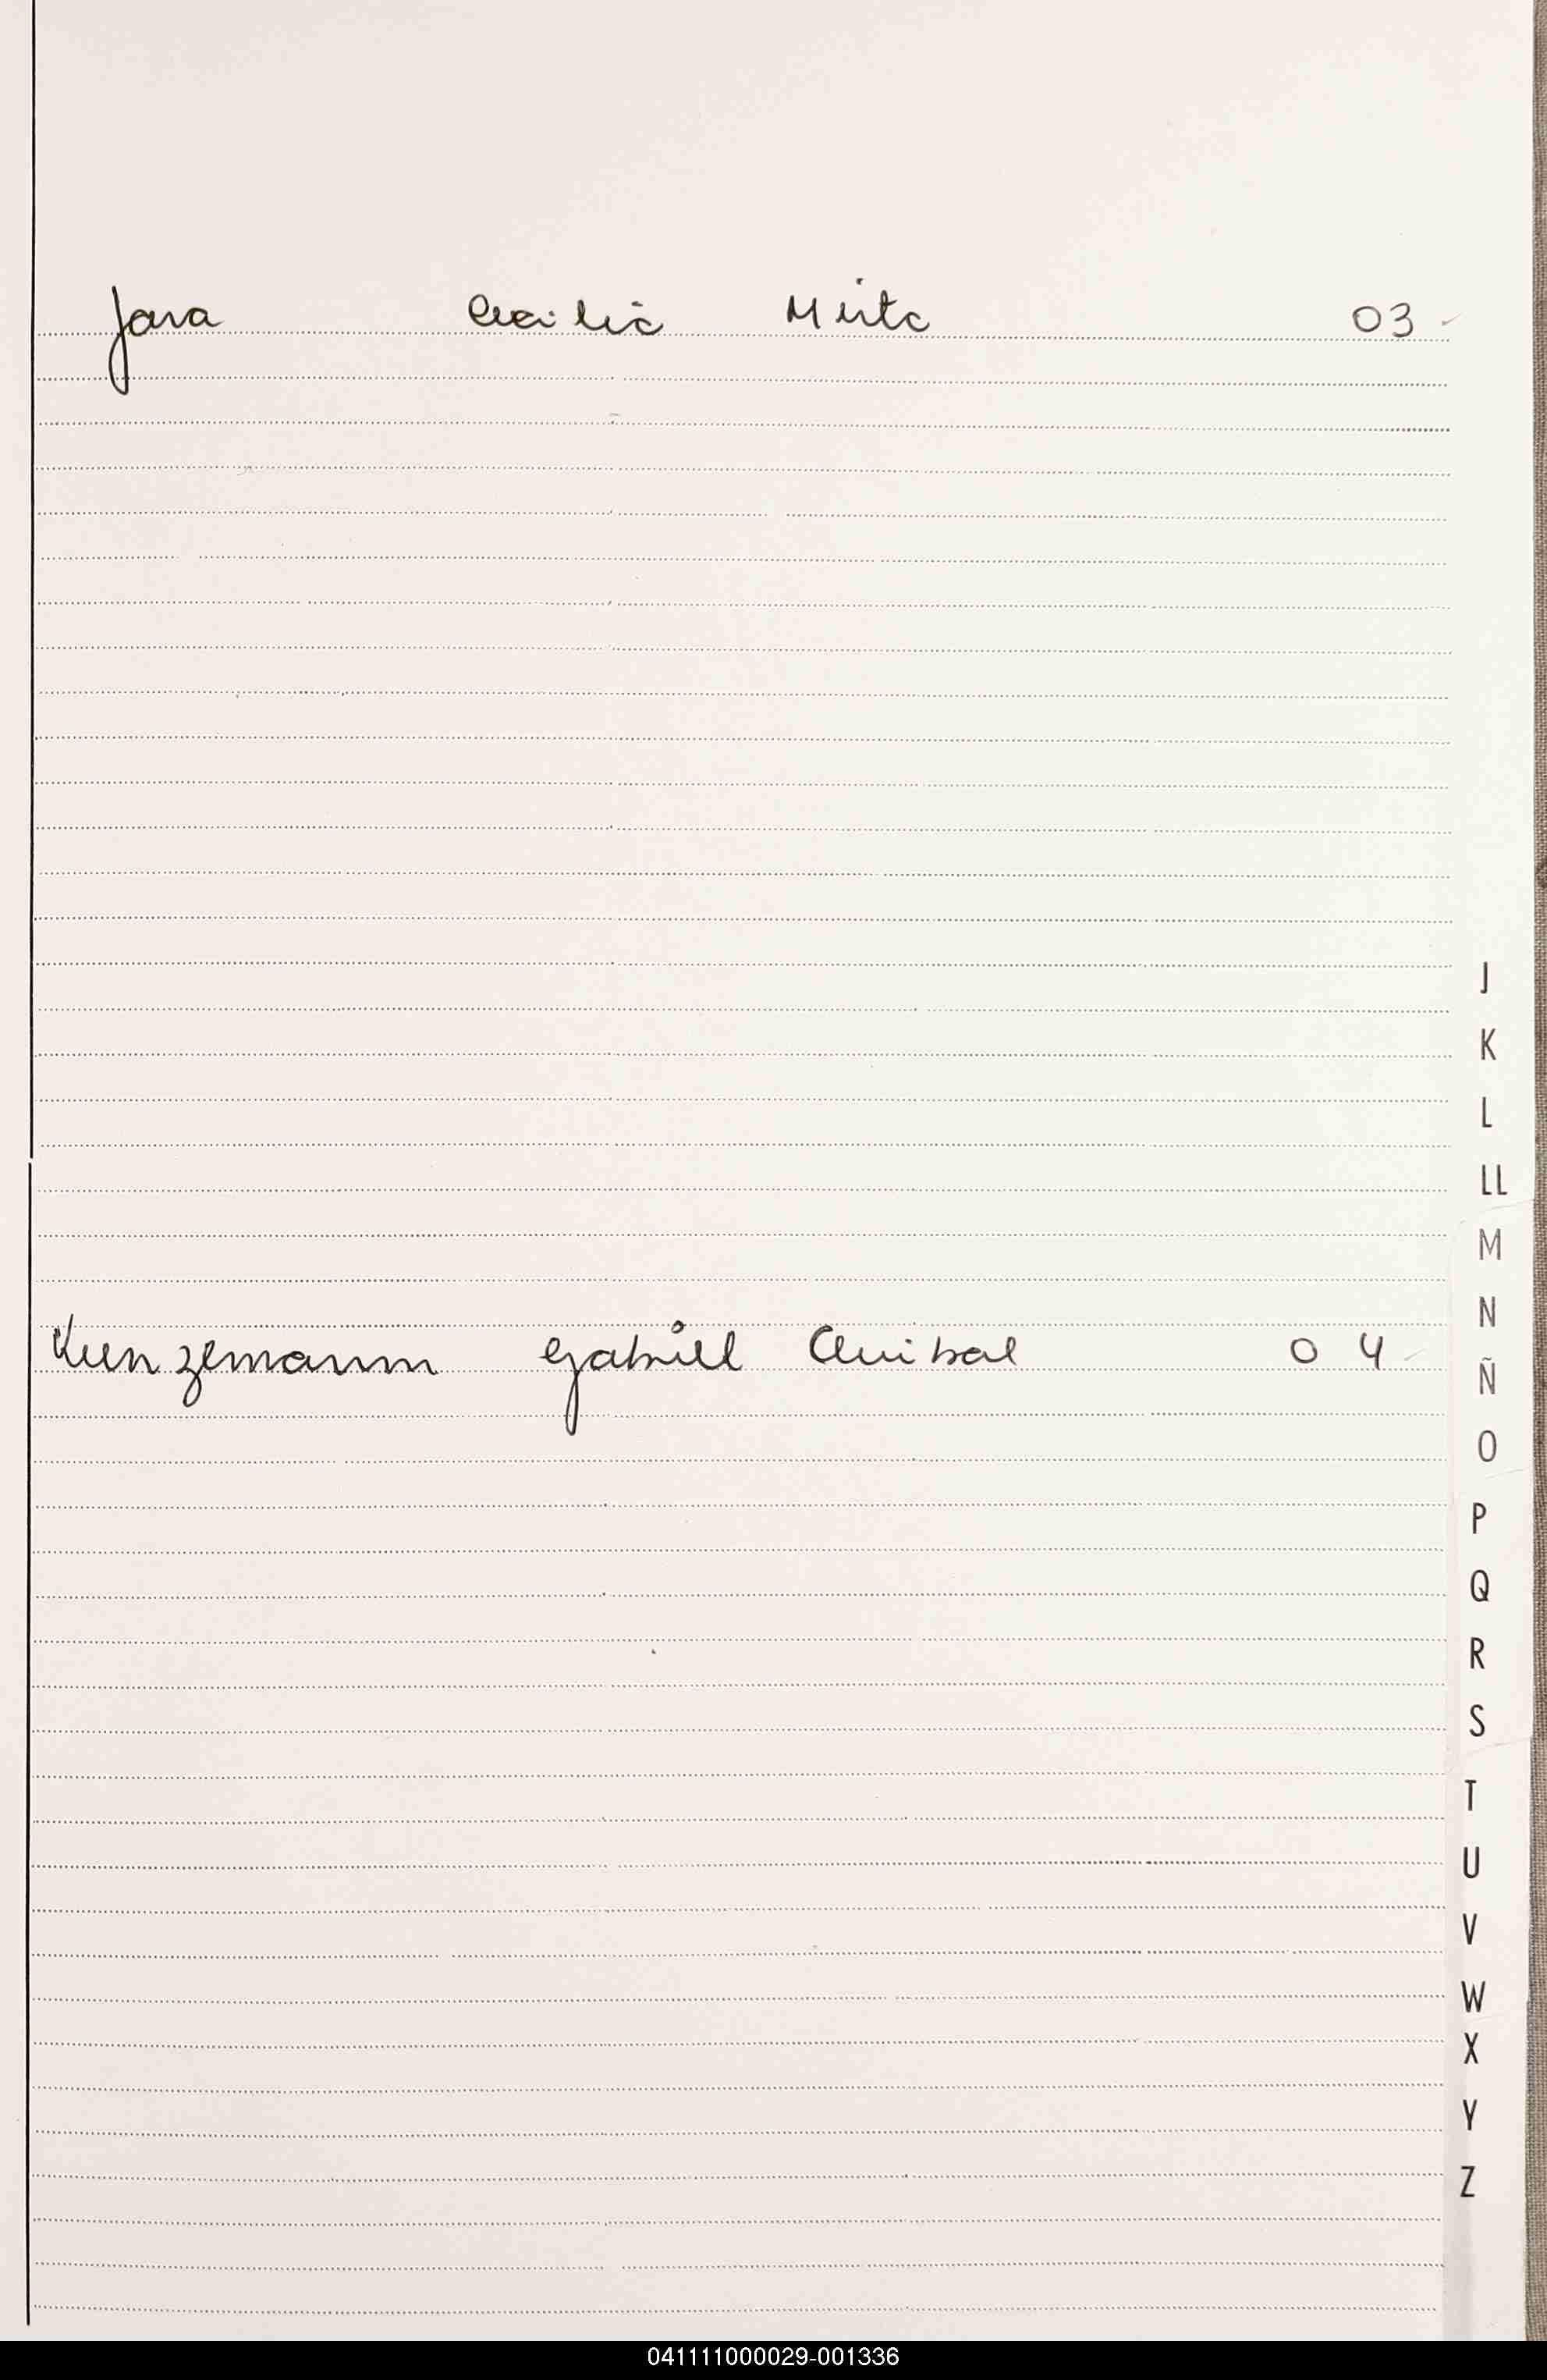 Jara Cecilia Mirta 03
J
K
L
LL
M
N
Kunzemann Gabriel Anibal 04
Ñ
O
P
Q
R
S
T
U
V
W
X
Y
Z
041111000029-001336